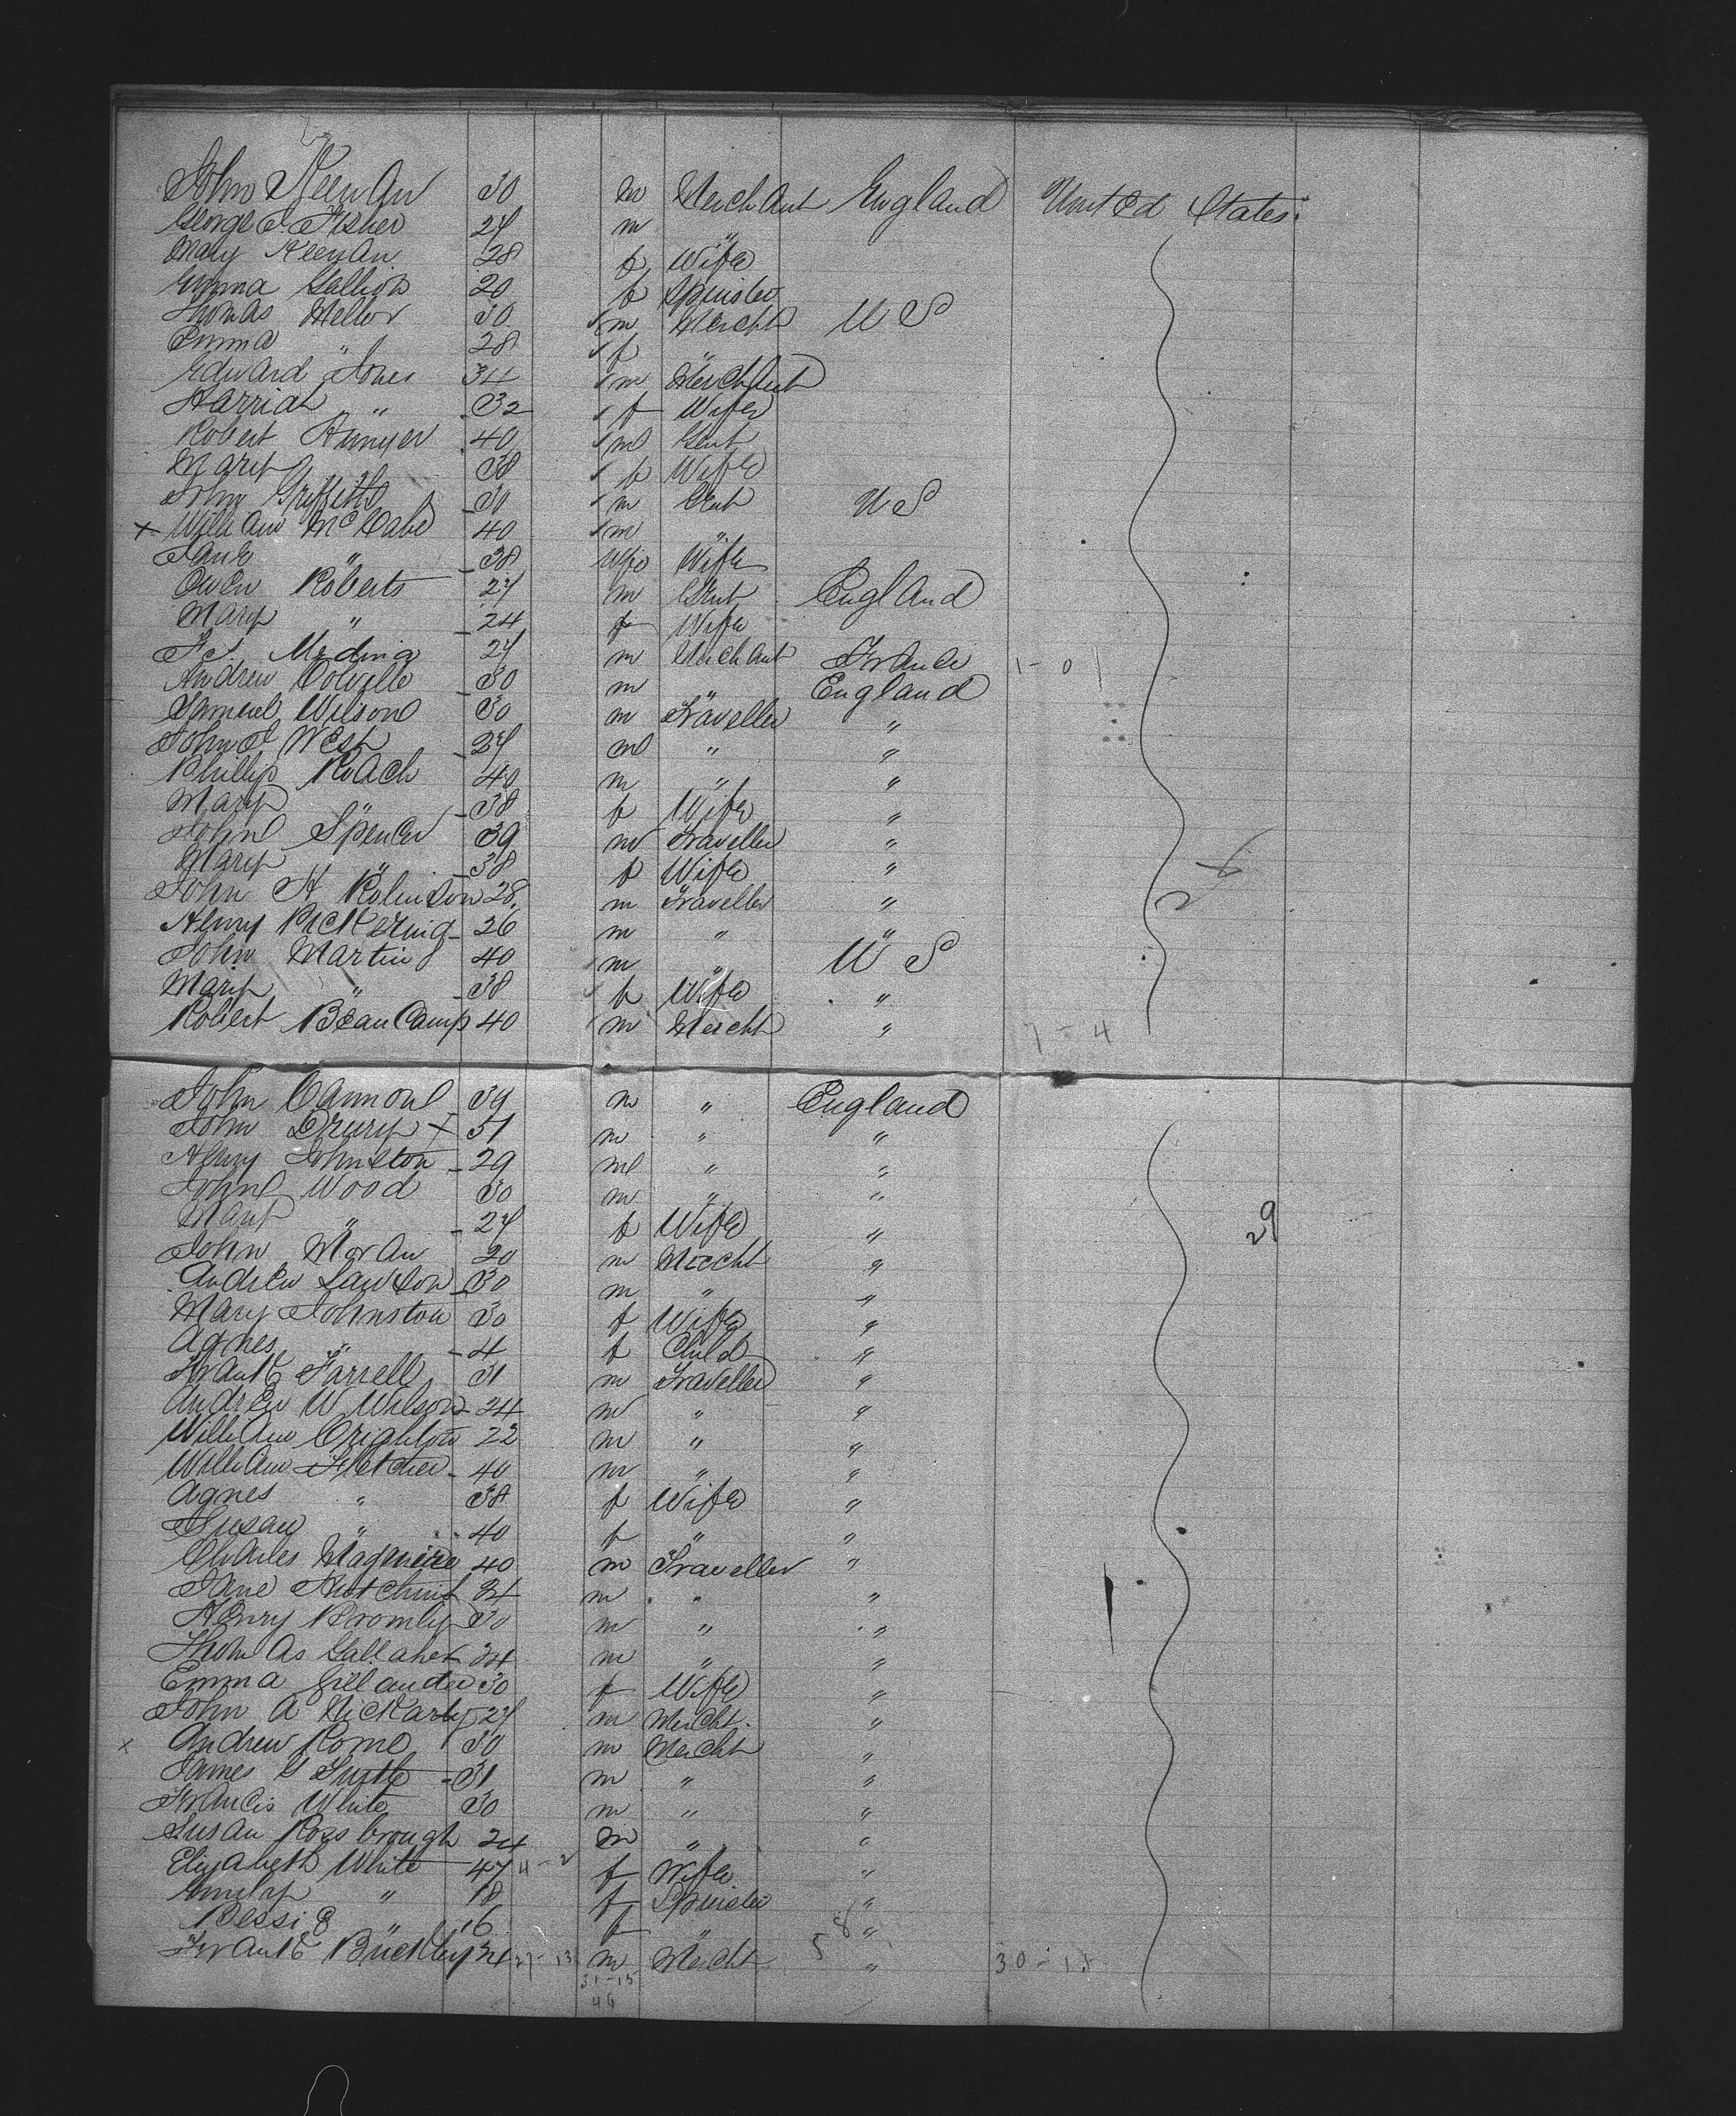 John Keenan 30 m Merchant England United States
George S. Fisher 27 m "
Mary Keenan 28 f Wife
Emma Gallion 20 f Spinster
Thomas Mellor 30 m Mercht U S
Emma " 28 f "
Edward Jones 34 m Merchant
Harriat " 32 f Wife
Robert 40 m Gent
Mary " 38 f Wife
John Griffith 30 m Gent U S
x William McCabe 40 m "
Jane " 38 Wife
Owen Roberts 27 m Gent England
Mary " 24 f Wife
Medina 27 m Merchant France 1 - 0
Andrew Colville 30 m " England
Samuel Wilson 30 m Traveller "
John West 27 m " "
Phillip Roach 40 m " "
Mary " 38 f Wife "
John Spencer 39 m Traveller "
Mary " 38 f Wife "
John H Robinson 28 m Traveller "
Henry Pickering 26 m " "
John Martin 40 m " U S
Mary " 38 f Wife "
Robert BeauCamp 40 m Mercht " 7 - 4
John Cannon 39 m " England
John Drury x 31 m " "
Henry Johnston 29 m " "
John Wood 30 m " "
Mary " 27 f Wife " 29
John Moran 20 m Mercht "
Andrew Lawson 30 m " "
Mary Johnston 30 f Wife "
Agnes " 4 f Child "
Frank Farrell 31 m Traveller "
Andrew W Wilson 24 m " "
William Crighton 22 m " "
William Fletcher 40 m " "
Agnes " 38 f Wife "
Susan " 40 f " "
Charles Maguire 40 m Traveller "
Jane 34 m " "
Henry Bromly 30 m " "
Thomas Gallaher 34 m " "
Emma 30 f Wife "
John A 27 m Mercht. "
x Andrew Rome 30 m Mercht "
James G 31 m " "
Francis White 30 m " "
Susan Rossbrough 24 m " "
Elizabeth White 47 4 - 2 f Wife "
Emily " 18 f Spinster "
Bessie " 16 f " "
Frank Buckley 34 27 - 13 m Mercht 5 " 30 - 18
31 - 15